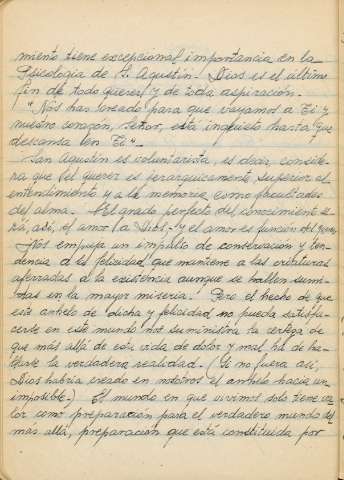 miento tiene excepcional importancia en la
Psicología de S. Agustín. Dios es el último
fin de todo querer y de toda aspiración.
"Nos has creado para que vayamos a Ti y
nuestro corazón, Señor, está inquieto hasta que
descansa en Ti".
San Agustín es voluntarista, es decir, conside-
ra que el querer es jerarquicamente superior al
entendimiento y a la memoria como facultades
del alma. El grado perfecto del conocimiento se-
rá, así, el amor a Dios, y el amor es función del querer.
Nos empuja un impulso de conservación y ten-
dencia a la felicidad que mantiene a las criaturas
aferradas a la existencia aunque se hallen sumi-
das en la mayor miseria. Pero el hecho de que
este anhelo de dicha y felicidad no pueda satisfa-
cerse en este mundo nos suministra la certeza de
que más allá de esta vida de dolor y mal, ha de ha-
llarse la verdadera realidad. (Si no fuera así,
Dios habría creado en nosotros el anhelo hacia un
imposible.) El mundo en que vivimos solo tiene va-
lor como preparación para el verdadero mundo del
más allá, preparación que está constituida por